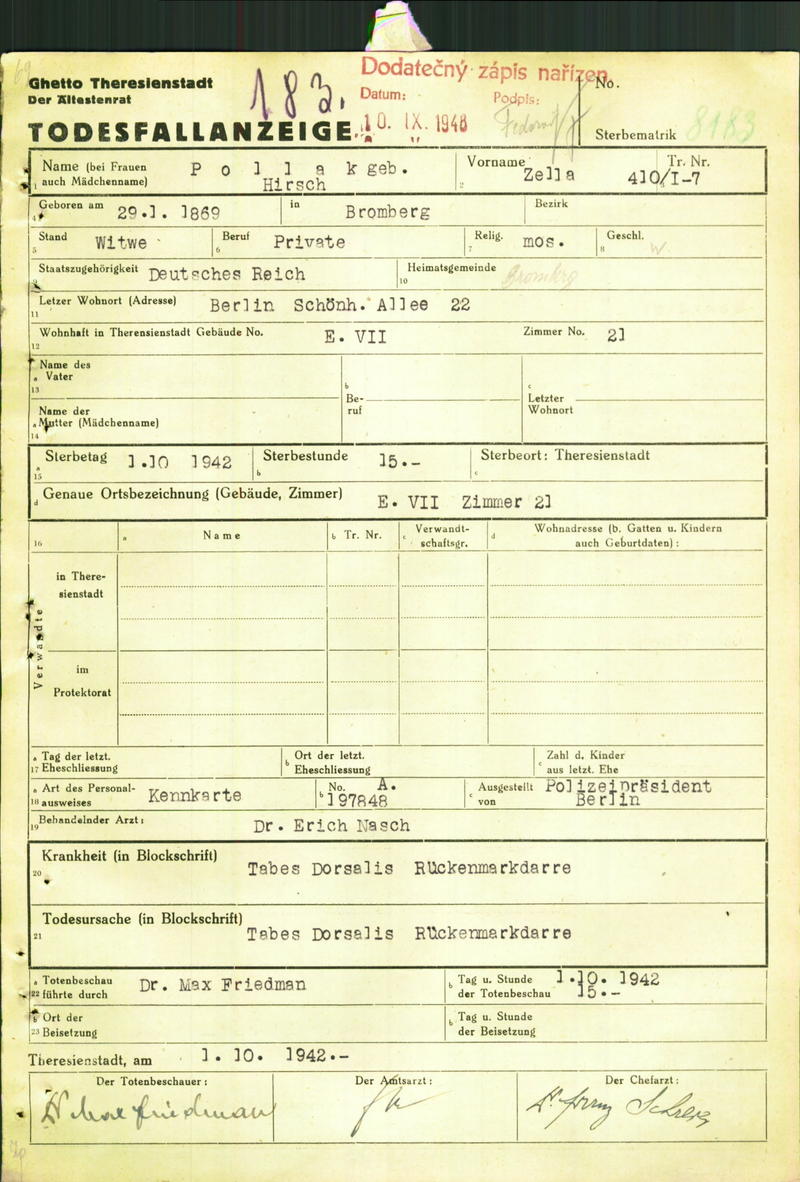 Ghetto Theresienstadt
Der Ältestenrat
Dodatečný zápis nařízen
Datum: Podpis:
No.
TODESFALLANZEIGE
10. IX. 1948
Sterbematrik 8183
Name (bei Frauen auch Mädchenname) Pollak geb. Hirsch
1
Vorname Zella
2
Tr. Nr. 410/I-7
Geboren am 29.1. 1869
4
in Bromberg
Bezirk
Stand Witwe
5
Beruf Private
6
Relig. mos.
7
Geschl. w
8
Staatszugehörigkeit Deutsches Reich
Heimatsgemeinde Bromberg
10
Letzer Wohnort (Adresse) Berlin Schönh. Allee 22
11
Wohnhaft in Therensienstadt Gebäude No. E. VII
12
Zimmer No. 21
Name des
a Vater
13
Name der
a Mutter (Mädchenname)
14
b
Be-
ruf
c
Letzter
Wohnort
a Sterbetag 1.10 1942
15
Sterbestunde 15.-
b
Sterbeort: Theresienstadt
c
d Genaue Ortsbezeichnung (Gebäude, Zimmer) E. VII Zimmer 21
16
a Name
b Tr. Nr.
c Verwandt-
schaftsgr.
d Wohnadresse (b. Gatten u. Kindern
auch Geburtdaten) :
Verwandte
in There-
sienstadt
im
Protektorat
a Tag der letzt.
17 Eheschliessung
b Ort der letzt.
Eheschliessung
c Zahl d. Kinder
aus letzt. Ehe
a Art des Personal-
18 ausweises Kennkarte
b No. A.
197848
c Ausgestellt von Polizeipräsident
Berlin
19 Behandelnder Arzt: Dr. Erich Nasch
Krankheit (in Blockschrift)
20
Tabes Dorsalis Rückenmarkdarre
Todesursache (in Blockschrift)
21
Tabes Dorsalis Rückenmarkdarre
a Totenbeschau
22 führte durch Dr. Max Friedman
b Tag u. Stunde 1.10. 1942
der Totenbeschau 15.-
Ort der
23 Beisetzung
b Tag u. Stunde
der Beisetzung
Theresienstadt, am 1. 10. 1942.-
Der Totenbeschauer:
Der Amtsarzt:
Der Chefarzt: